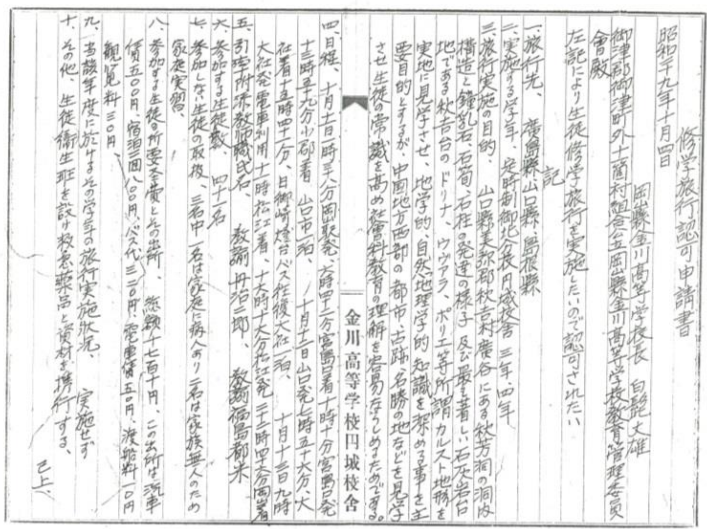 修学旅行認可申請書
昭和二十九年十月四日
岡山縣金川高等学校長 白髭大雄
御津郡御津町外十箇村組合立岡山縣金川高等学校教育管理委員
會殿
左記により生徒修学旅行を実施したいので認可されたい
記
一、旅行先、 廣島縣山口縣島根縣
二、実施する学年、 定時制御北分校円城校舎 三年、四年
三、旅行実施の目的、 山口縣美祢郡秋吉村廣谷にある秋芳洞の洞放
構造と鐘乳石、石筍、石柱の発達の様子 及び最も著しい石灰岩台
地である秋吉台のドリナ、ウヴァラ、ポリエ等所謂カルスト地形を
実地に見学させ、地学的、自然地理学的知識を深める事を主
要目的とするが、中国地方西部の都市、古跡、名勝の地などを見学
させ生徒の常識を高め社會科教育の理解を容易ならしめるためです。
金川高等学校円城校舎
四、日程、 十月十一日 岡山駅発、 宮島口着 十時十分宮島口発
十三時五十九分小郡着 山口市泊、 十月十二日山口発七時五十六分、大
社着十五時四十一分、日御崎燈台バス往復大社泊、 十月十三日九時
大社発電車利用十一時松江着、十六時十六分松江発二十二時四十六分岡山着
五、引率附添教師職氏名、 教諭 丹治二郎、 教諭 福島郁米
六、参加する生徒数、 四十一名
七、参加しない生徒の取扱、 三名中一名は家庭に病人あり二名は家族無人のため
家庭実習。
八、参加する生徒の所要全費とその出所、 総額千七百十円、この出所は汽車
賃五〇〇円、宿泊二回八〇〇円、バス代三二〇円、電車賃五〇円、渡船料一〇円
観覧料三〇円
九、当該年度に於けるその学年の旅行実施状況、 実施せず
十、その他、生徒衛生班を設け救急薬品と資材を携行する、
已上、